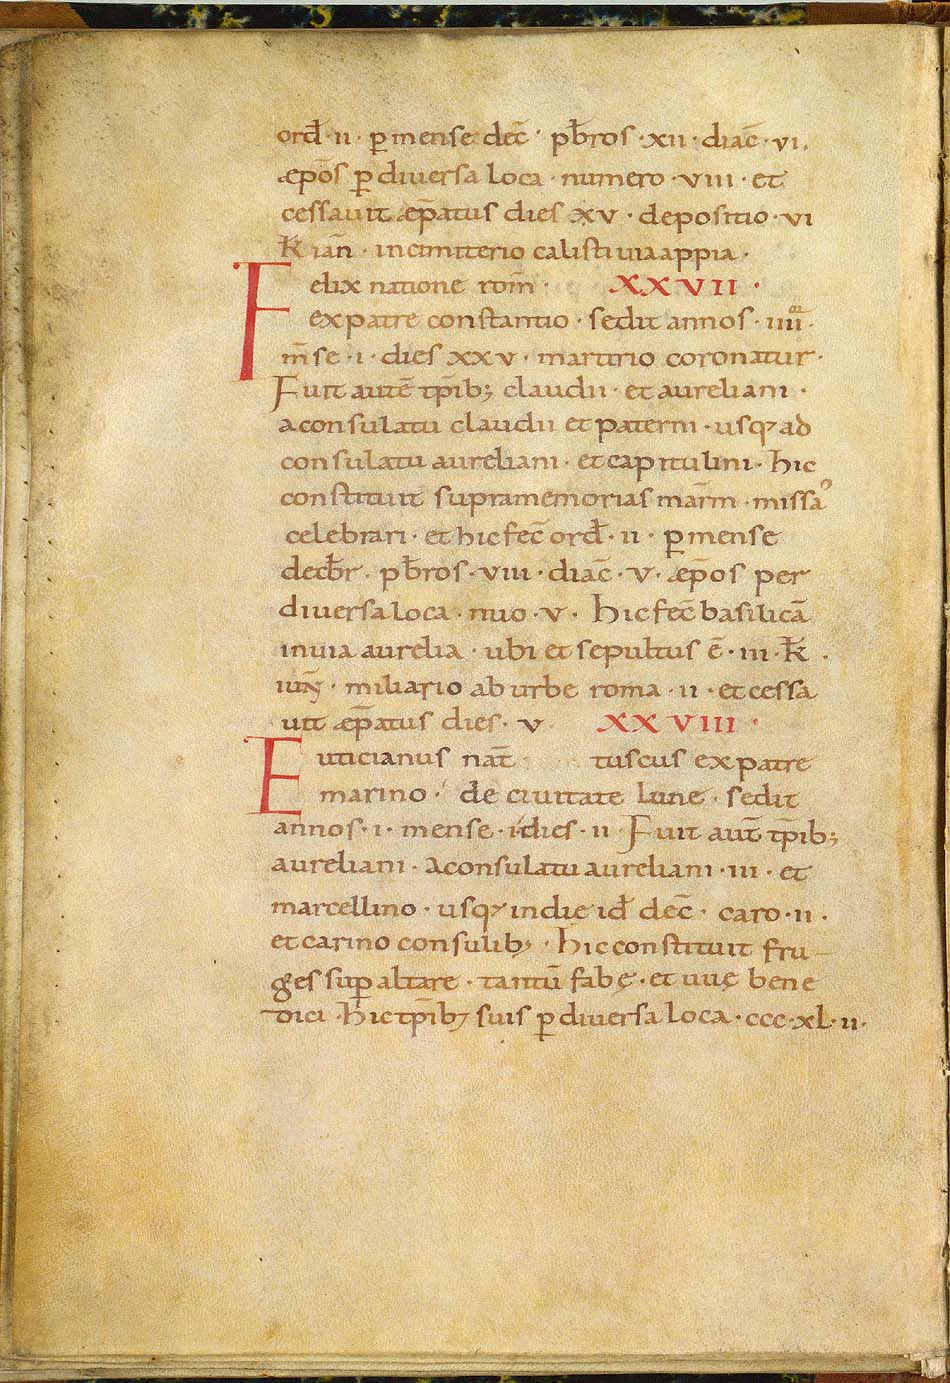 ord̄ · ii · p̱ mense dec̄ · pb̄ros · xii · diac̄ · vi ·
æpōs p̱ diuersa loca · numero · viii · et
cessauit æp̄atus dies xv · depositio · vi
k̄ ian̄ · incimiterio calisti uiaappia ·
Felix natione rom̄ · XXVII ·
expatre constantio · sedit annos · iiii ·
m̄se · i · dies xxv · martirio coronatur ·
Fuit autē tp̄ib; claudii · et aureliani ·
aconsulatu claudii et paterni · usq; ad
consulatu aureliani · etcapitulini · hic
constituit supramemorias mar̄m · missa
celebrari · et hicfec̄ ord̄ · ii · p̱mense
decb̄r · pb̄ros · viii · diac̄ · v · æp̄os per
diuersaloca · nuo · v · hicfec̄ basilicā
inuia aurelia · ubi et sepultus ē · iii · k̄ ·
iun̄ · miliario ab urbe roma · ii · etcessa
uit æp̄atus dies · v · XXVIII ·
Euticianus nat̄ tuscus expatre
marino · de ciuitate lune · sedit
annos · i · mense · i dies · ii · Fuit aut̄ tp̄ib;
aureliani · aconsulatu aureliani · iii · et
marcellino · usq; indie id̄ dec̄ · caro · ii ·
et carino consulib; · hicconstituit fru
ges sup̱ altare · tantū fabę · et uuę bene
dici · hic tp̄ib; suis p̱ diuersa loca · ccc · xl · ii ·